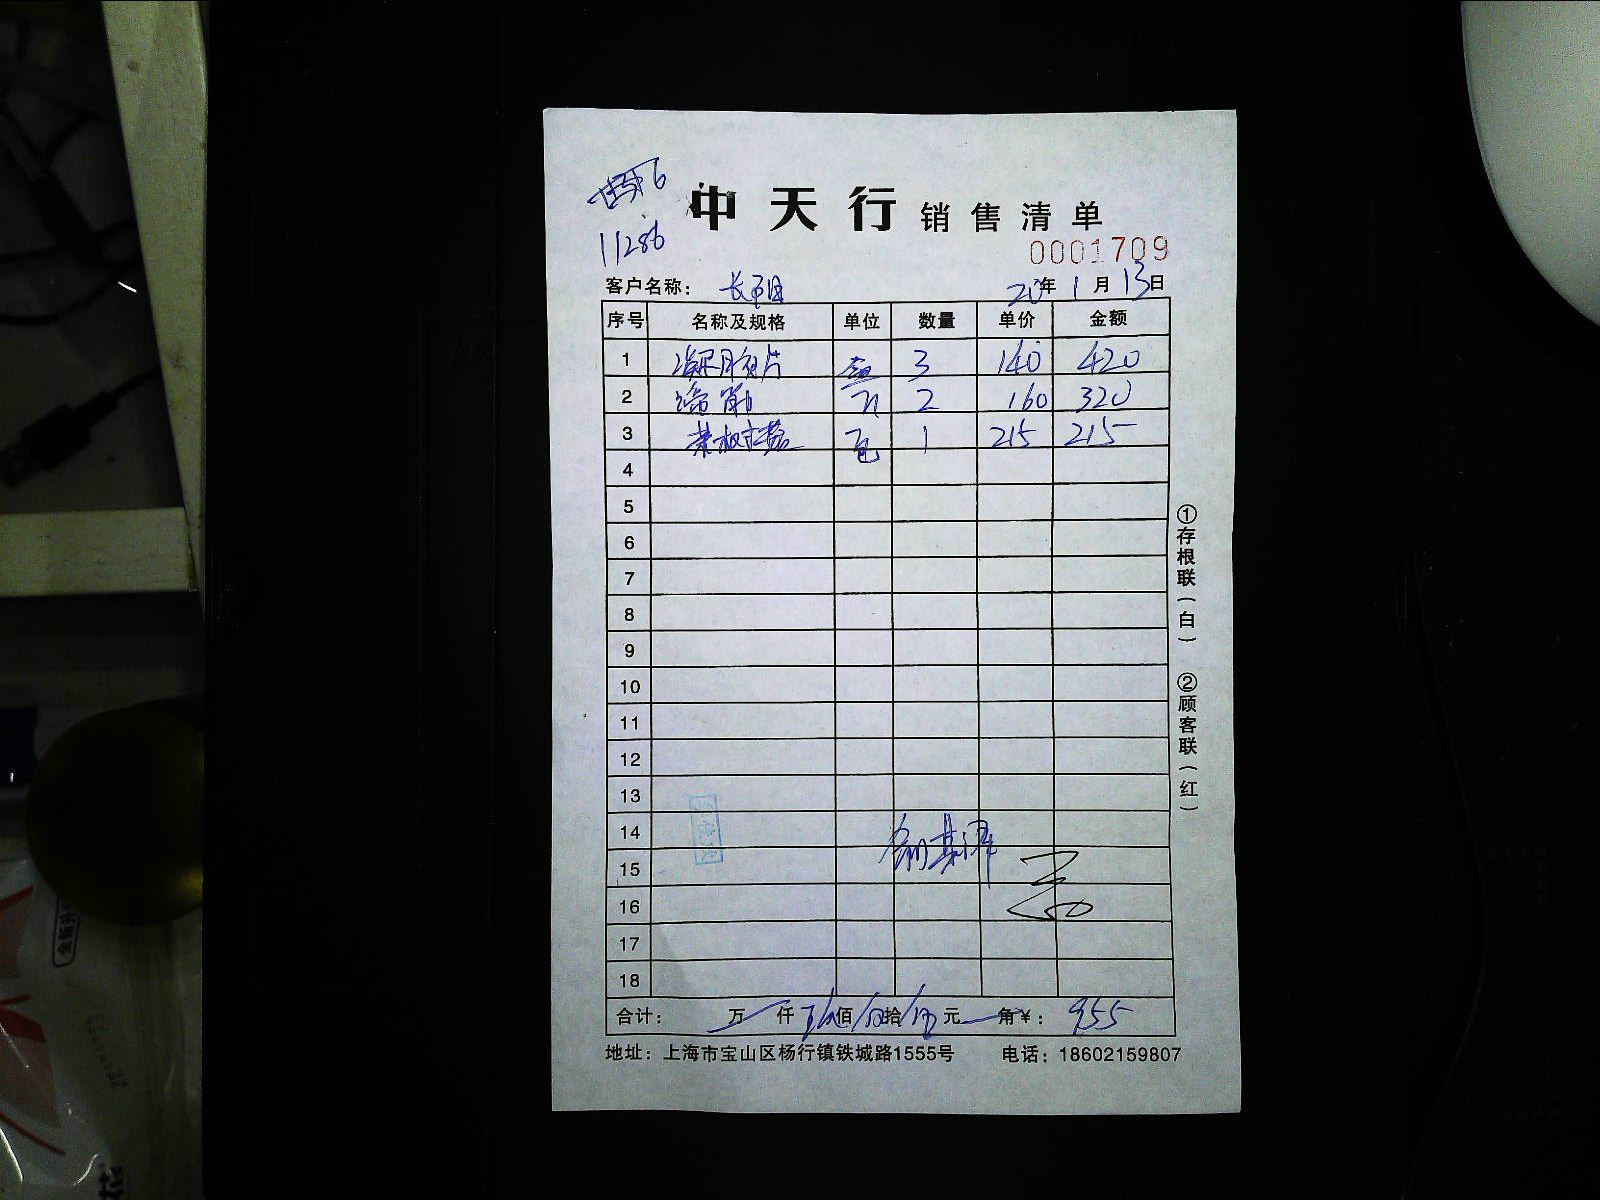 中天行 销售清单
11286
0001709
客户名称: 20年1月13日
序号 名称及规格 单位 数量 单价 金额
1 3 140 420
2 2 160 320
3 包 1 215 215
4
5
6
7
8
9
10
11
12
13
14
15
16
17
18
合计: 万 仟 玖佰 伍拾 伍元 角¥: 955
地址:上海市宝山区杨行镇铁城路1555号 电话:18602159807
①存根联(白) ②顾客联(红)